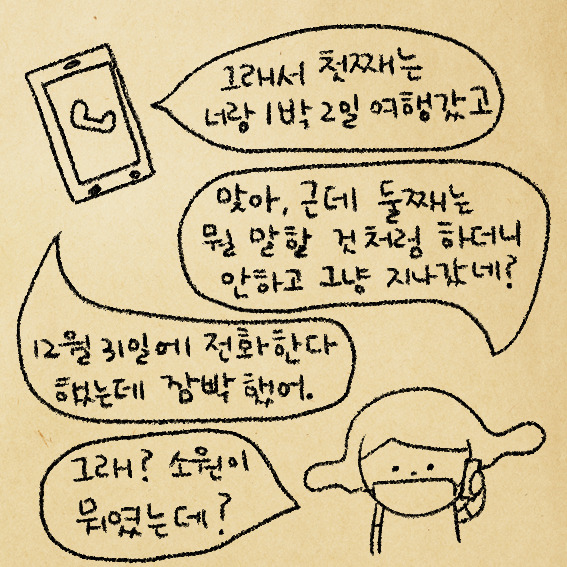 그래서 첫째는
너랑 1박 2일 여행갔고
맞아, 근데 둘째는
뭘 말할 것처럼 하더니
안하고 그냥 지나갔네?
12월 31일에 전화한다
했는데 깜박 했어.
그래? 소원이
뭐였는데?